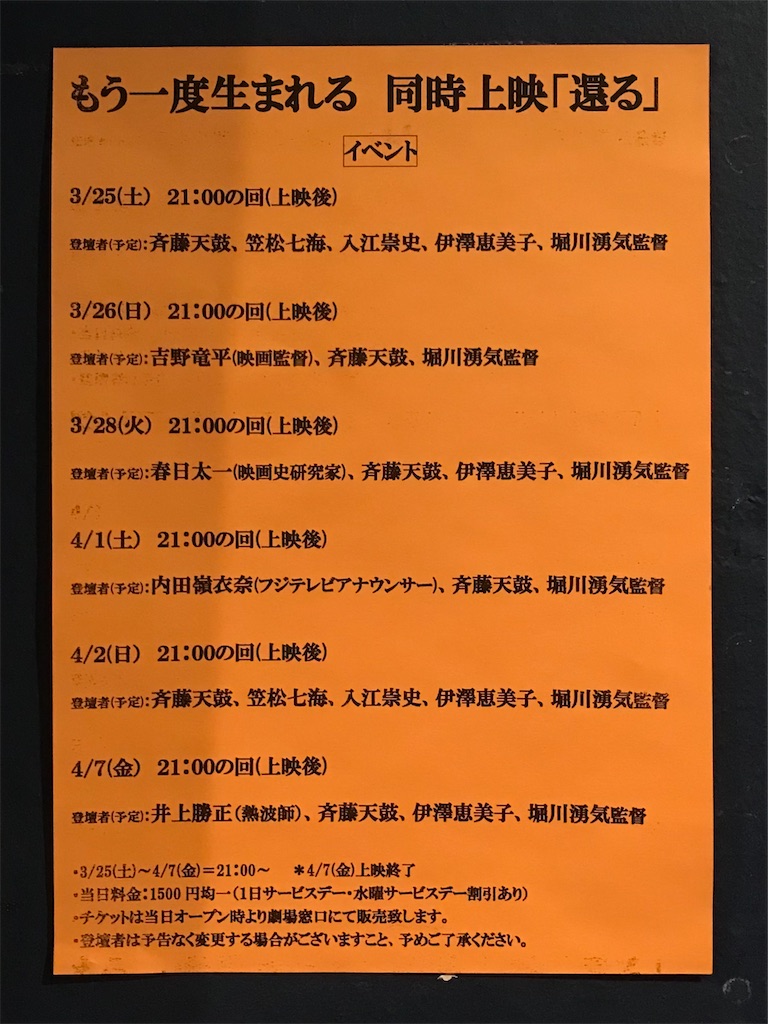 もう一度生まれる 同時上映「還る」
イベント
3/25(土) 21:00の回(上映後)
登壇者(予定):斉藤天鼓、笠松七海、入江崇史、伊澤恵美子、堀川湧気監督
3/26(日) 21:00の回(上映後)
登壇者(予定):吉野竜平(映画監督)、斉藤天鼓、堀川湧気監督
3/28(火) 21:00の回(上映後)
登壇者(予定):春日太一(映画史研究家)、斉藤天鼓、伊澤恵美子、堀川湧気監督
4/1(土) 21:00の回(上映後)
登壇者(予定):内田嶺衣奈(フジテレビアナウンサー)、斉藤天鼓、堀川湧気監督
4/2(日) 21:00の回(上映後)
登壇者(予定):斉藤天鼓、笠松七海、入江崇史、伊澤恵美子、堀川湧気監督
4/7(金) 21:00の回(上映後)
登壇者(予定):井上勝正(熱波師)、斉藤天鼓、伊澤恵美子、堀川湧気監督
・3/25(土)～4/7(金)=21:00～ *4/7(金)上映終了
・当日料金:1500円均一(1日サービスデー・水曜サービスデー割引あり)
・チケットは当日オープン時より劇場窓口にて販売致します。
・登壇者は予告なく変更する場合がございますこと、予めご了承ください。